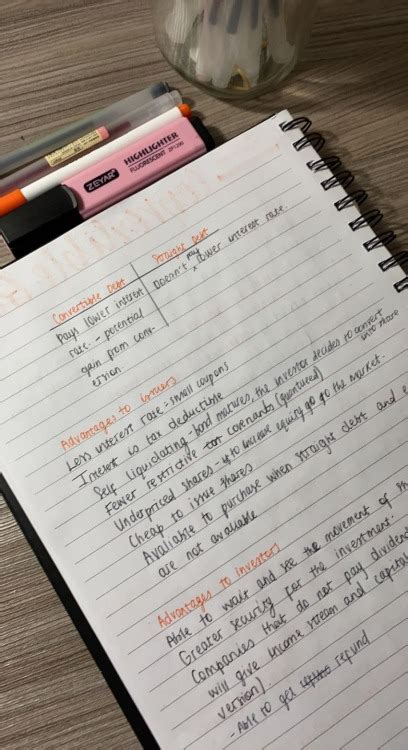 HIGHLIGHTER
FLUORESCENT
ZEYAR
Convertible Debt
Straight Debt
pays lower interest
rate - potential
gain from conv-
ersion
Doesn't pay lower interest rate
Advantages to
Less interest rate - small coupons
Interest is tax deductible
Self liquidating - bond matures, the investor decides to convert
into share
Fewer restrictive covenants
Underpriced shares - to increase equity go to the market.
Cheap to issue shares
Avaliable to purchase when straight debt and e
are not avaliable
Advantages to investors
Able to wait and see the movement of
Greater security for the investment.
Companies that do not pay dividend
will give income stream and capital
version)
- Able to get refund